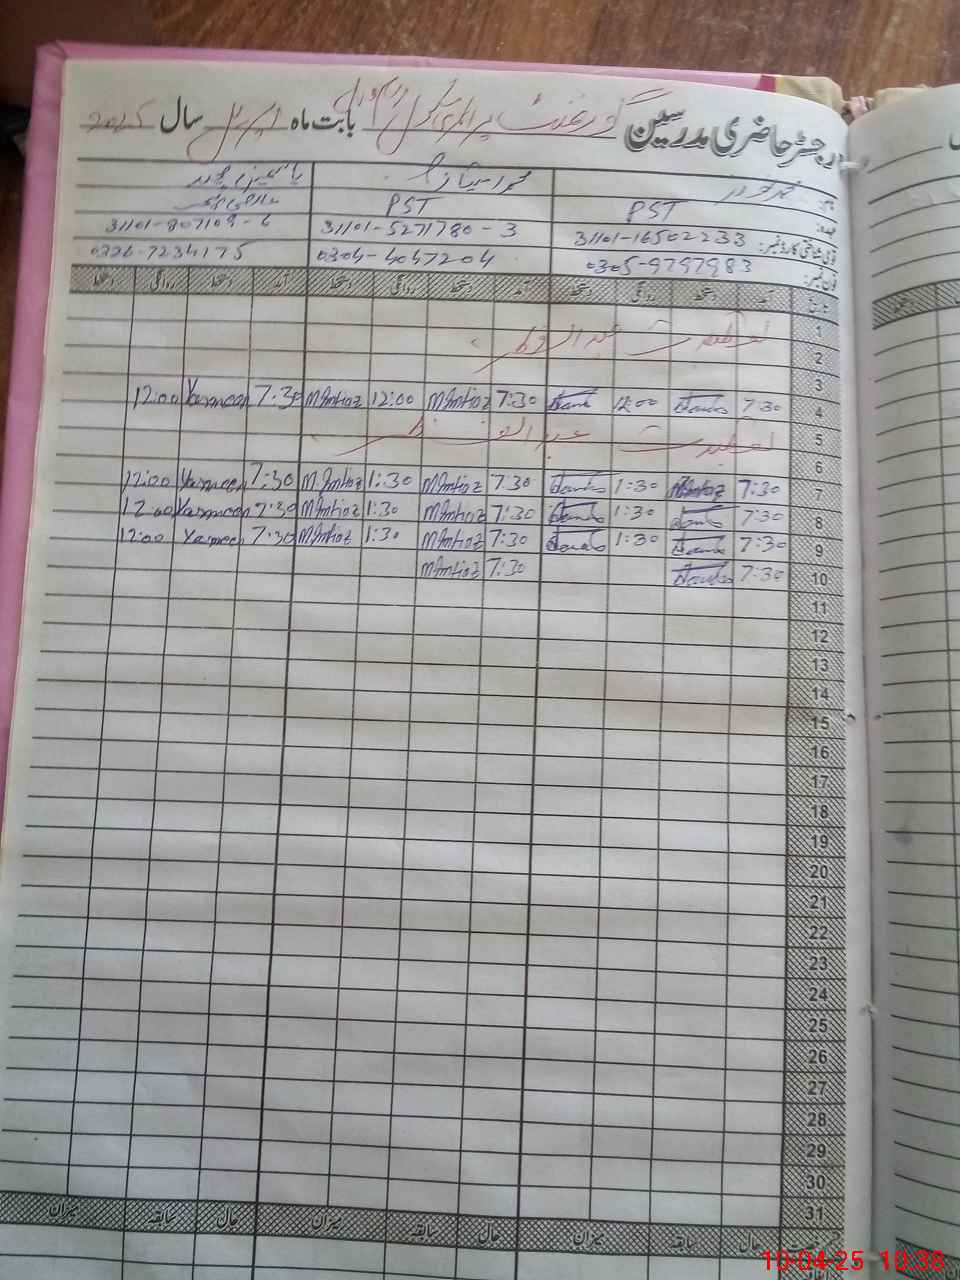 رجسٹر حاضری مدرسین گورنمنٹ پرائمری سکول بابت ماہ اپریل سال 2025
نام: محمد نواز محمد امتیاز یاسمین
عہدہ: PST PST
قومی شناختی کارڈ نمبر: 31101-16502233 31101-5271780-3 31101-807109-6
فون نمبر: 0305-9797983 0304-4047204 0326-7234175
تاریخ آمد دستخط روانگی دستخط آمد دستخط روانگی دستخط آمد دستخط روانگی دستخط
1 تعطیلات عید الفطر
2
3
4 7:30 12:00 7:30 M Imtiaz 12:00 M Imtiaz 7:30 Yasmeen 12:00
5 تعطیلات عید الفطر
6
7 7:30 M Imtiaz 1:30 7:30 M Imtiaz 1:30 M Imtiaz 7:30 Yasmeen 12:00
8 7:30 1:30 7:30 M Imtiaz 1:30 M Imtiaz 7:30 Yasmeen 12:00
9 7:30 1:30 7:30 M Imtiaz 1:30 M Imtiaz 7:30 Yasmeen 12:00
10 7:30 7:30 M Imtiaz
11
12
13
14
15
16
17
18
19
20
21
22
23
24
25
26
27
28
29
30
31
حال سابقہ میزان حال سابقہ میزان حال سابقہ میزان
10-04-25 10:38